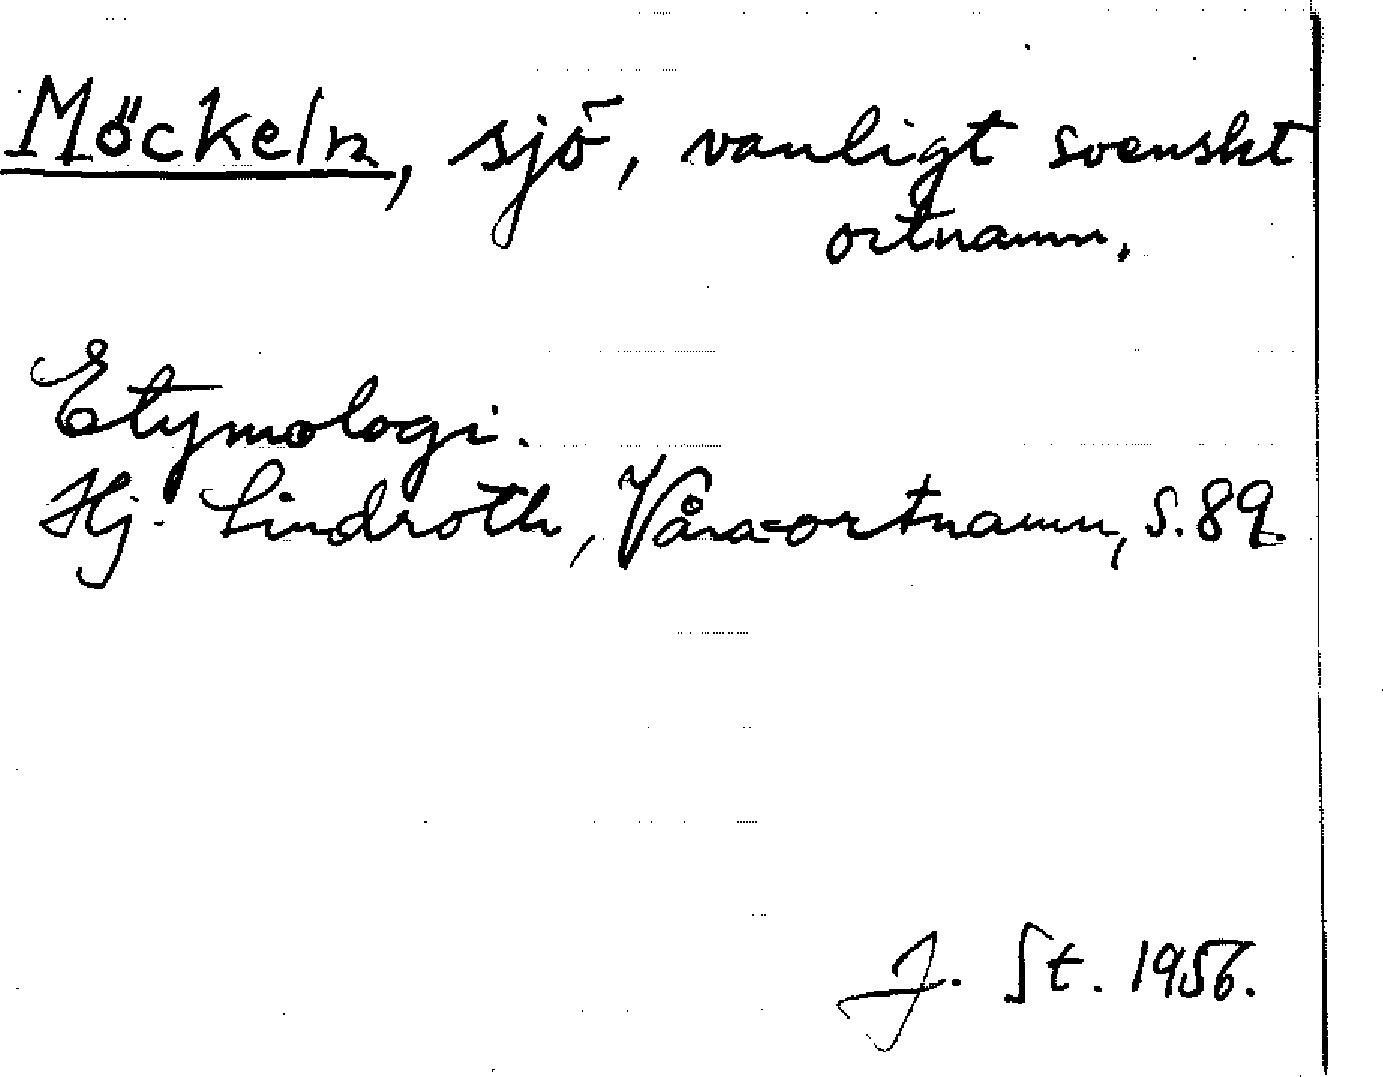 Möckeln, sjö, vanligt svenskt
ortnamn.
Etymologi.
Hj. Lindroth, Våra ortnamn, s. 89.
J. St. 1956.